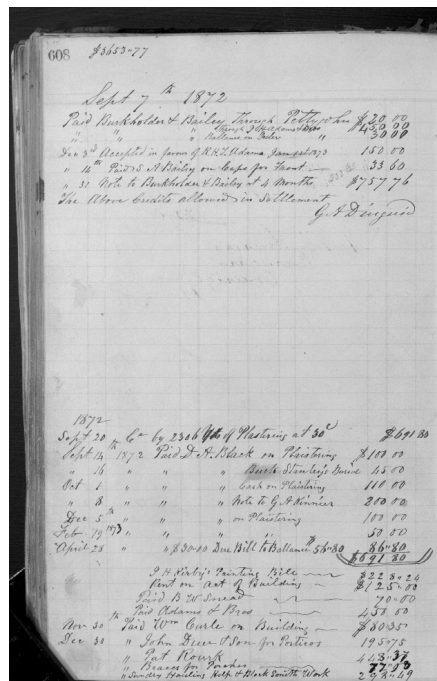 608 $3653"77
Sept 7th 1872
Paid Burkholder & Bailey Through Pettyjohn $20 00
" " " Through J H Adams & Bros 450 00
" " " Ballance in 30 00
Dec 3d Accepted in favor of R H T Adams Jany 1st 1873 150 00
" 14th Paid S A Bailey on Caps for Front 33 60
" 31 Note to Burkholder & Bailey at 4 Months $757 76
The Above Credits allowed in Settlement
G A Diuguid
1872
Sept 20th Cr by 2306 Yds of Plastering at 30c $691 80
Sept 14th 1872 Paid D A Black on Plaistering $100 00
" 16 " " " Buck Stanley's Burial 45 00
Oct 1 " " " Cash on Plaistering 110 00
" 8 " " " Note to G A Kinnier 200 00
Dec 5th " " " on Plaistering 100 00
Feb 19 1873 " " " " 50 00
April 28 " " $30=00 Due Bill to Ballance $56=80 86=80
$691 80
J H Kirby's Painting Bill $228=24
Rent on act of Building $125=00
Paid B W Snead 70=00
Paid Adams & Bros 450 00
Nov 30th Paid Wm Curle on Building $80 35
Dec 30 " John Duer & Son for Porticos 195=75
" Pat Rourk 448=37
" Braces for Porches 77=03
" Sundry Hauling Help & Black Smith Work 298=49